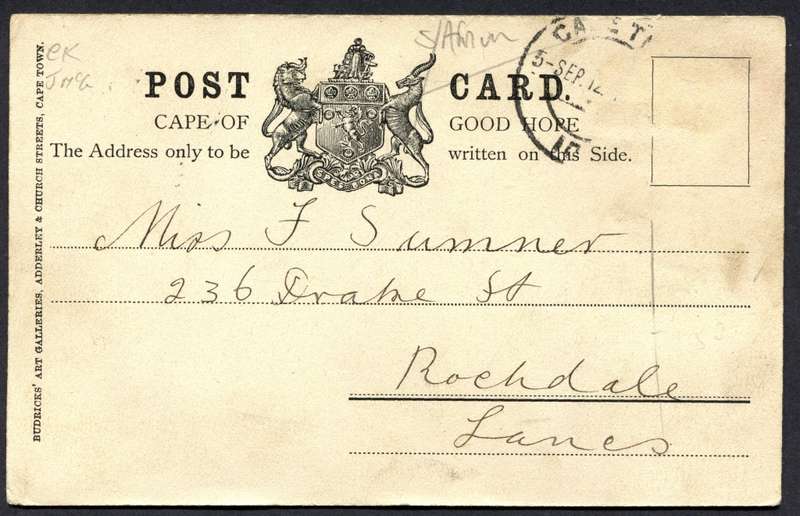 POST CARD.
CAPE OF GOOD HOPE
The Address only to be written on this Side.
5-SEP.12
Miss F Sumner
236 Drake St
Rochdale
Lancs
BUDRICKS' ART GALLERIES, ADDERLEY & CHURCH STREETS, CAPE TOWN.